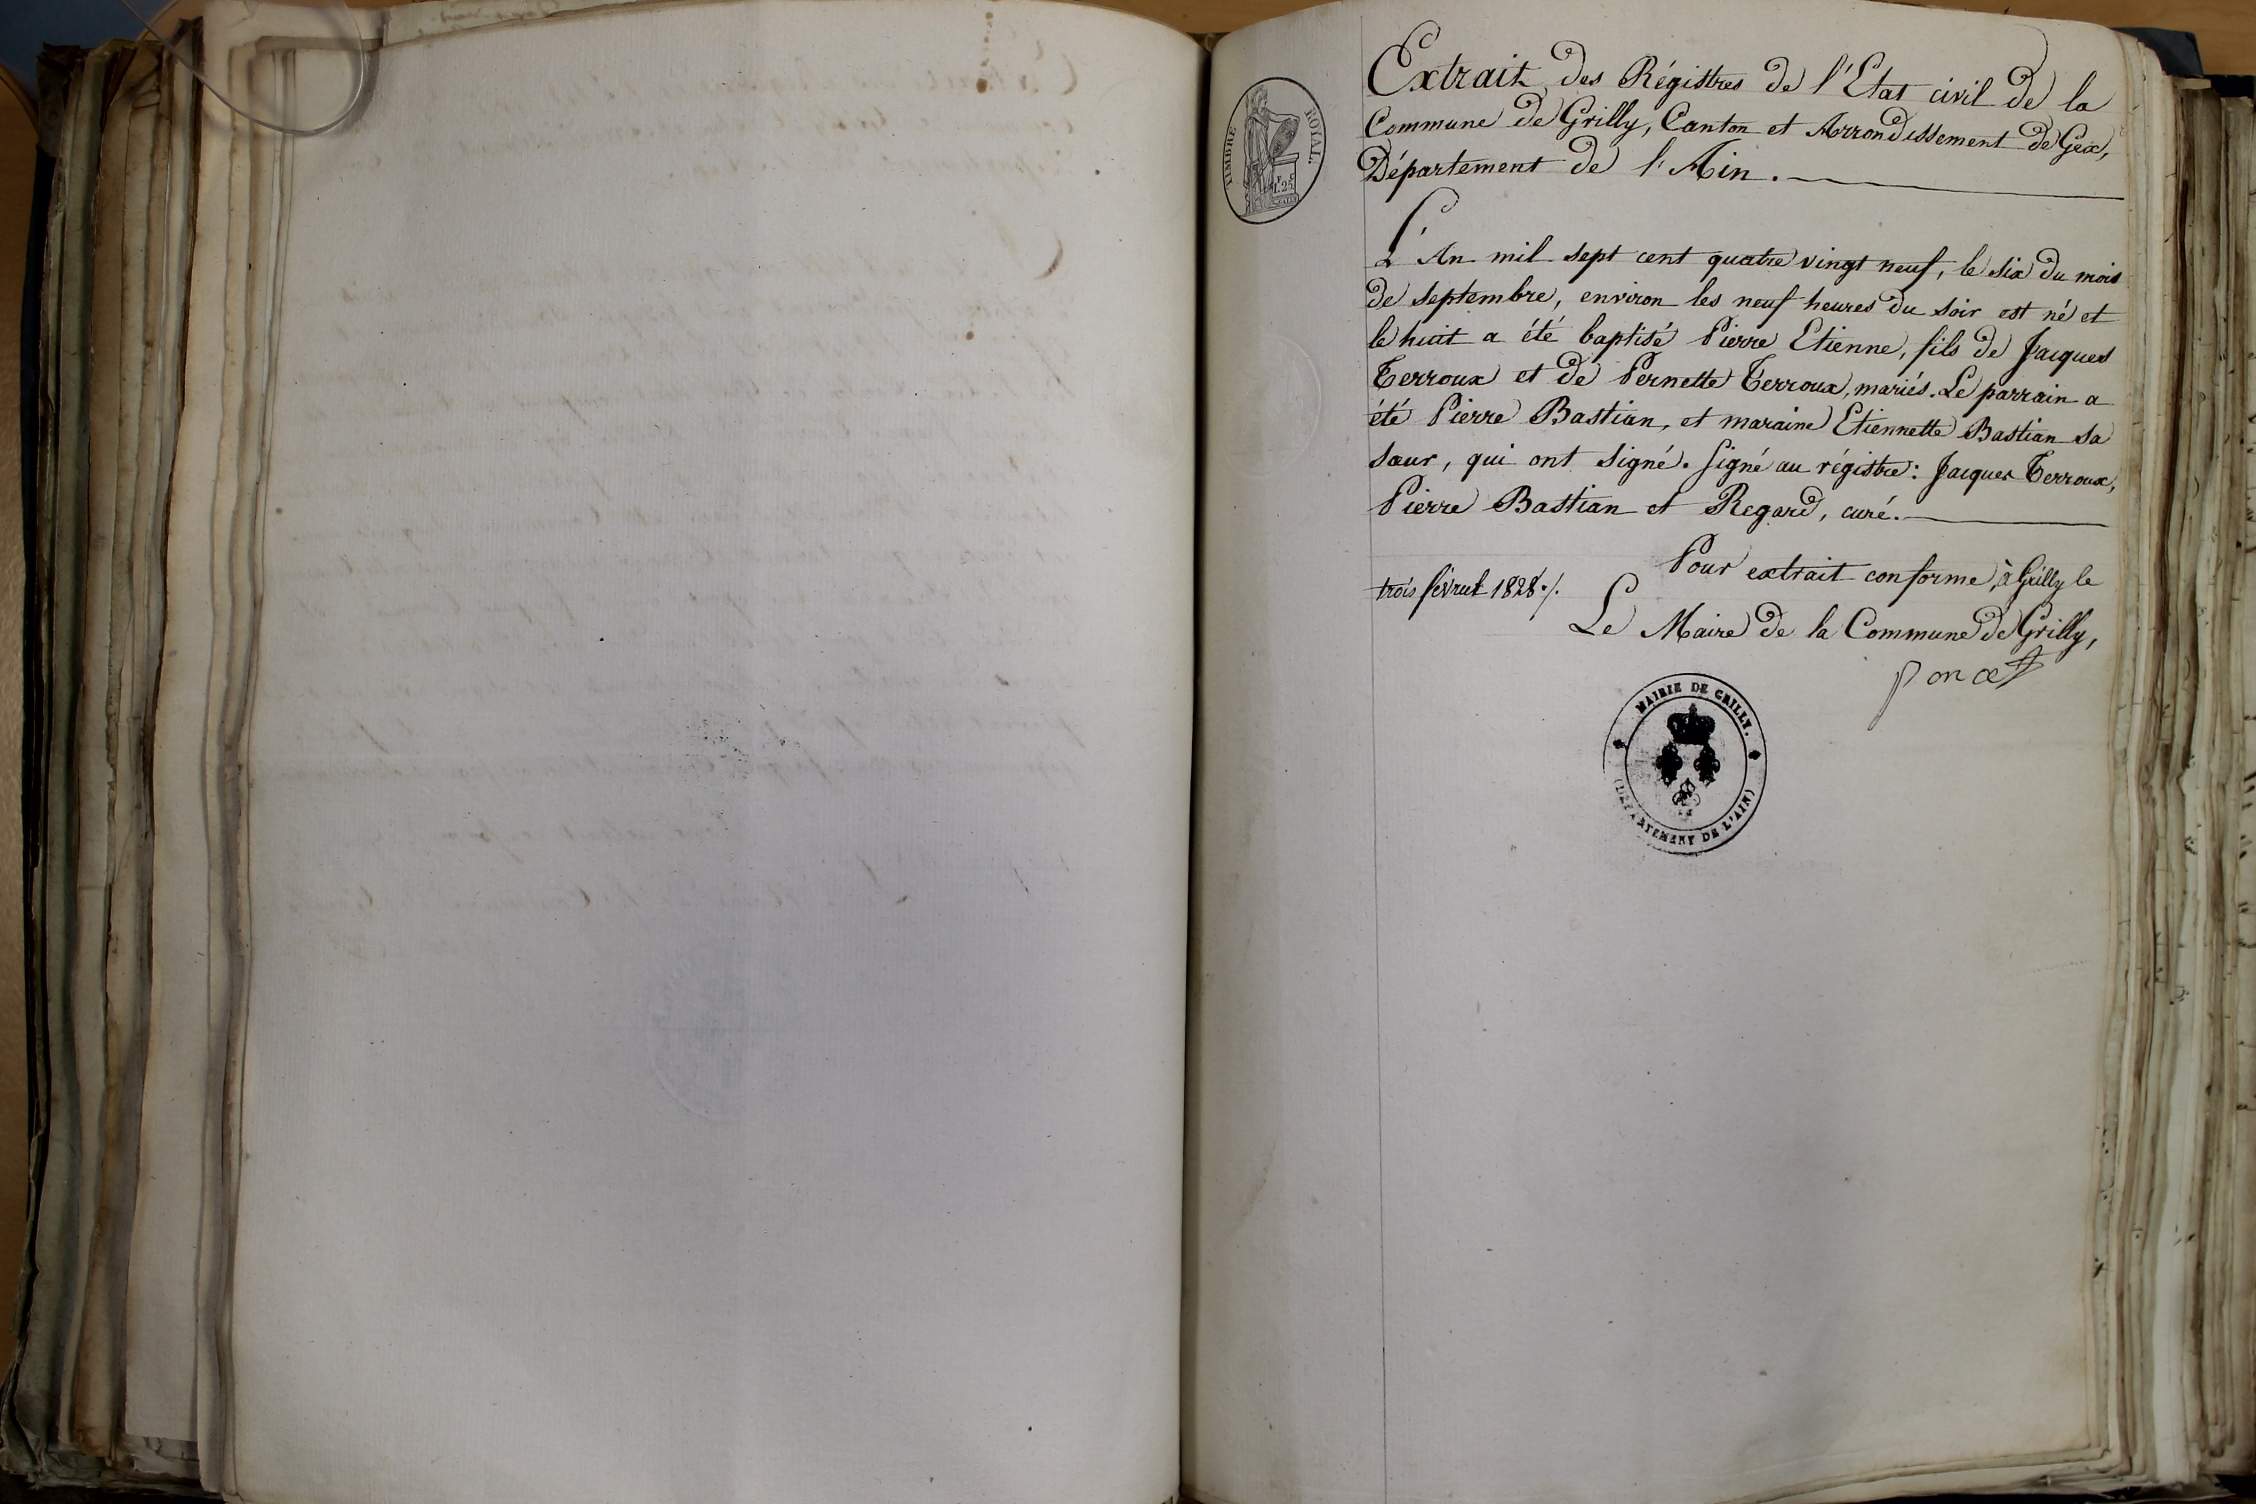 TIMBRE ROYAL.
Extrait des Régistres de l'Etat civil de la
Commune de Grilly, Canton et Arrondissement de Gex,
Département de l'Ain.
L'An mil sept cent quatre vingt neuf, le six du mois
de septembre, environ les neuf heures du soir est né et
le huit a été baptisé Pierre Etienne, fils de Jacques
Terroux et de Pernette Terroux, mariés. Le parrain a
été Pierre Bastian, et maraine Etiennette Bastian sa
sœur, qui ont signé. Signé au régistre: Jacques Terroux,
Pierre Bastian et Regard, curé.
Pour extrait conforme, à Grilly le
trois février 1828 ./.
Le Maire de la Commune de Grilly,
Poncet
MAIRIE DE GRILLY.
(DEPARTEMENT DE L'AIN)